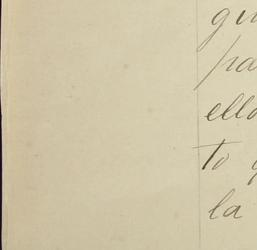 gu
pa
ello
to q
la